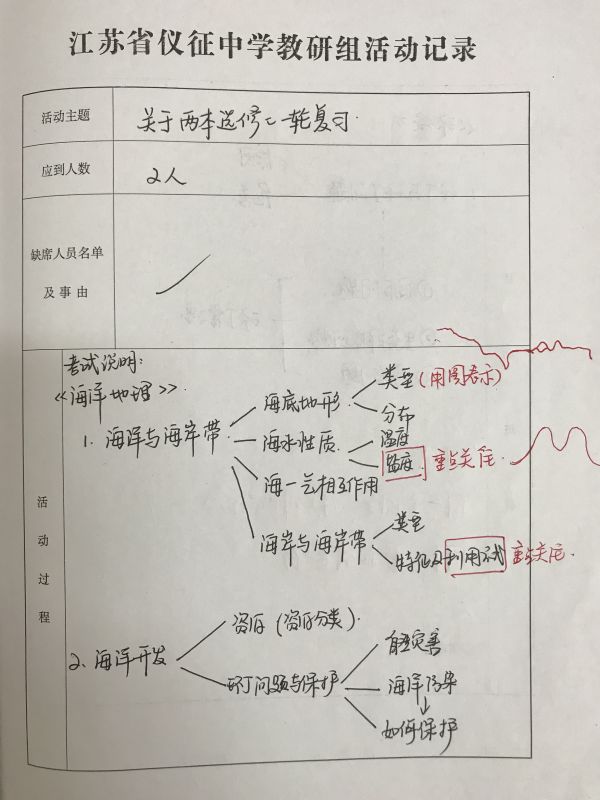 江苏省仪征中学教研组活动记录
活动主题
关于两本选修一轮复习.
应到人数
2人
缺席人员名单
及事由
活动过程
考试说明:
《海洋地理》.
1. 海洋与海岸带
海底地形
类型(用图表示)
分布
海水性质
温度
盐度. 重点关注.
海一气相互作用
海岸与海岸带
类型
特征及利用方式 重点关注.
2. 海洋开发
资源(资源分类).
环境问题与保护
自然灾害
海洋污染
如何保护